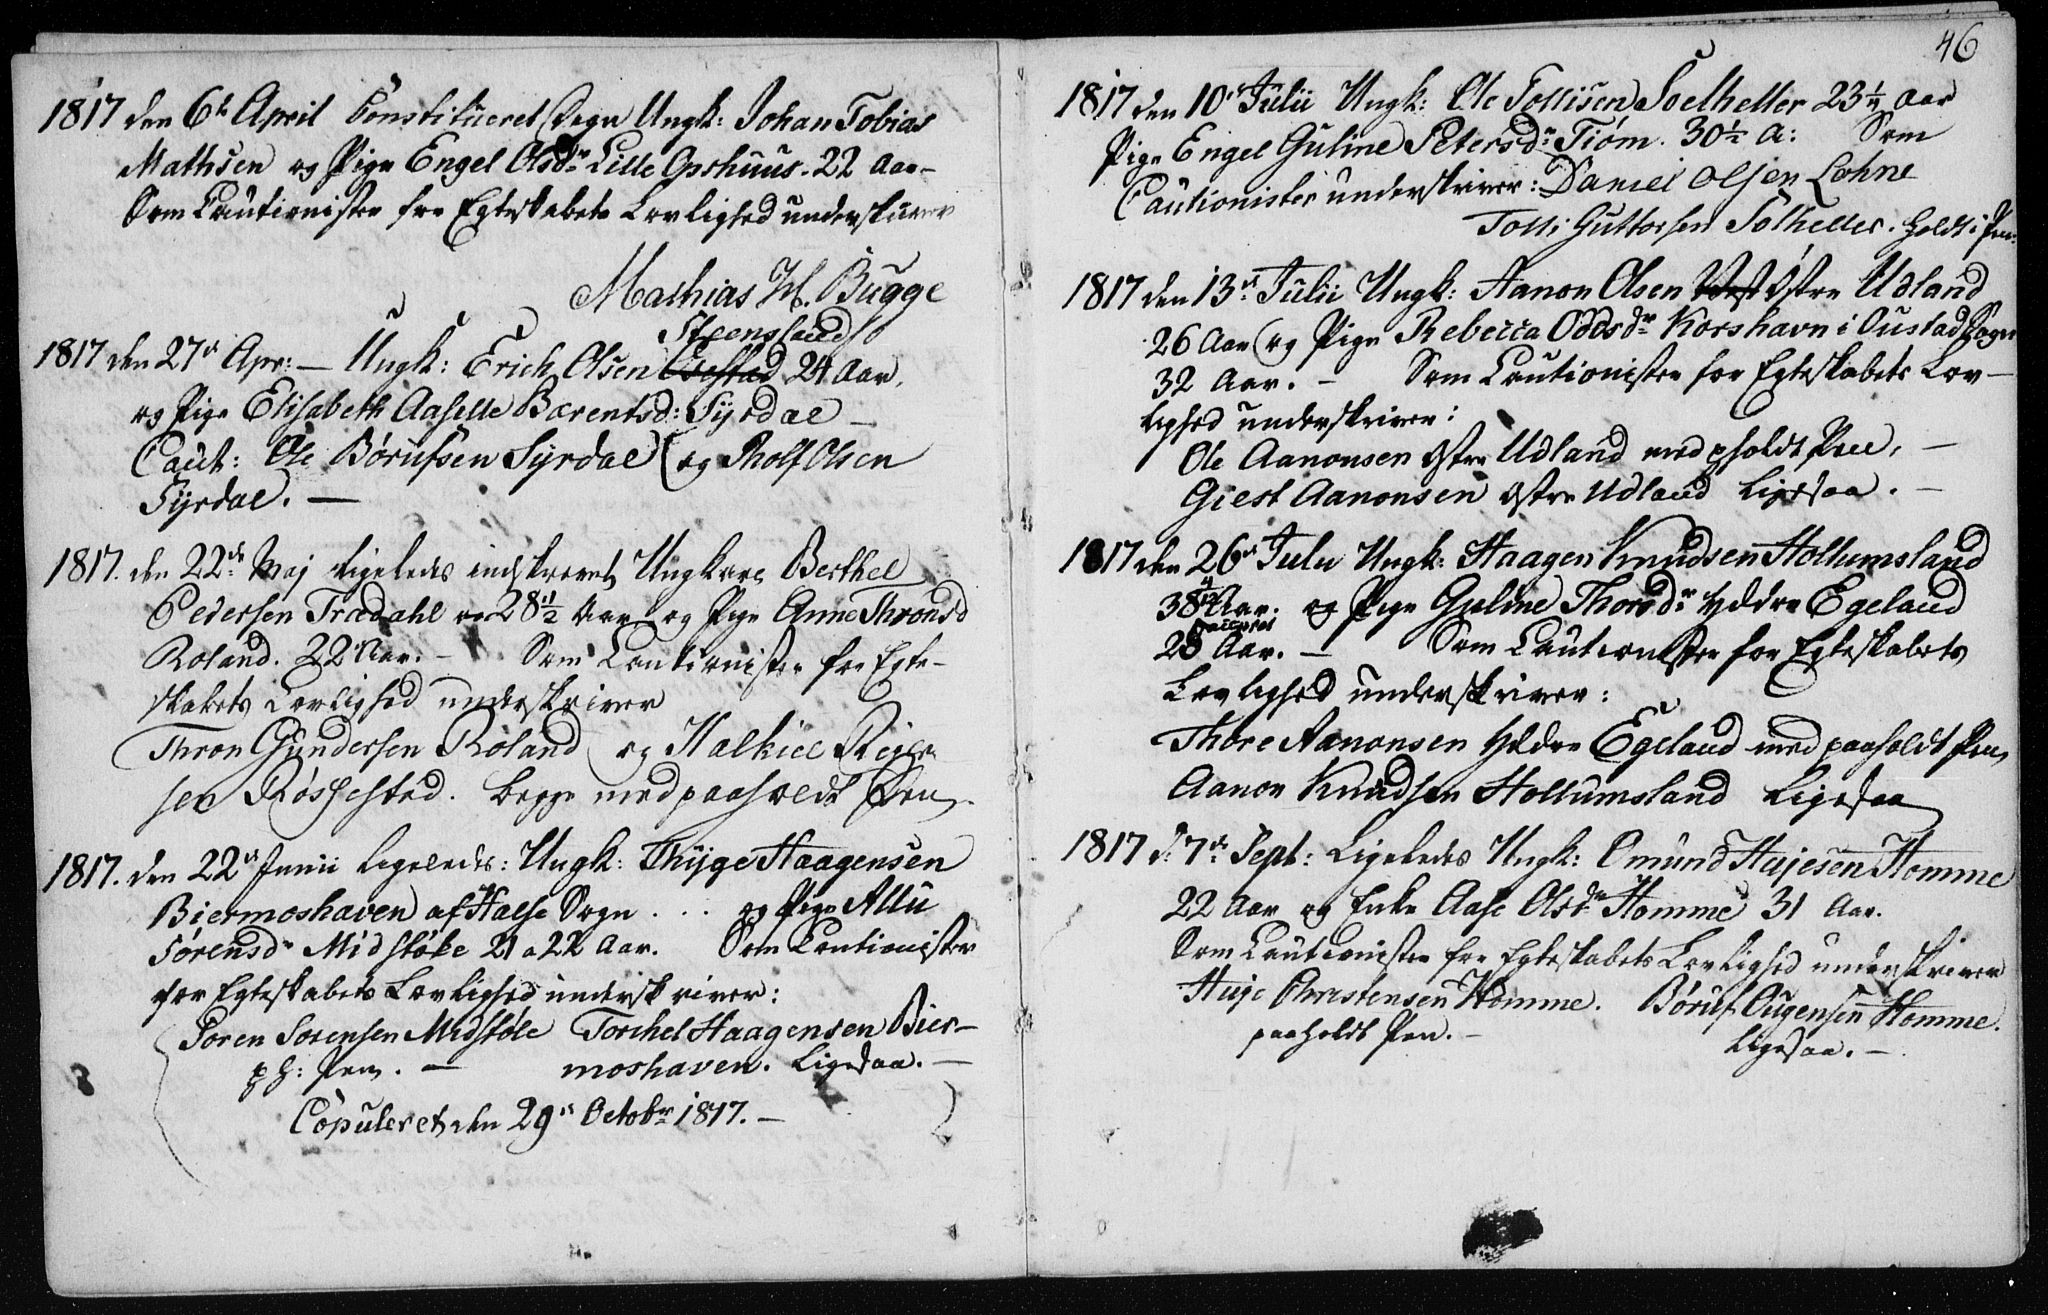 1817 den 6te April Constitueret Degn Ungk: Johan Tobias
Mathsen og Pige Engel Olsdr Lille Opshuus. 22 Aar -
Som Cautionister for Egteskabets Lovlighed underskriver
Mathias H. Bugge
Steensland
1817 den 27de Apr: - Ungk: Erich Olsen 24 Aar,
og Pige Elisabeth Aaselle Bærentsd: Syrdal -
Caut: Ole Børufsen Syrdal og Rolf Olsen
Syrdal. -
1817. den 22de Maj ligeledes indskrevet Ungkarl Berthel
Pedersen Trædahl 28 1/2 Aar og Pige Anne Thronsd
Roland. 22 Aar. - Som Cautionister for Egte-
skabets Lovlighed underskriver
Thron Gundersen Roland og Halkiel
sen Røssestad. begge med paaholdt Pen.
1817. den 22de Junii ligeledes: Ungk: Thyge Haagensen
Biermoshaven af Halse Sogn . . . og Pige Allu
Sørensdr Midbøke 21 a 22 Aar. Som Cautionister
for Egteskabets Lovlighed underskriver:
Søren Sørensen Midbøle Torchel Haagensen Bier-
p h: Pen. - moshaven. Ligesaa. -
Copuleret den 29de Octobr 1817. -
46
1817 den 10de Julii Ungk: Ole Tollisen Soelheller 23 1/4 Aar
Pige Engel Guline Petersdr Tiøm. 30 1/2 A: Som
Cautionister underskriver: Daniel Olsen Lohne
Tolli Guttorsen Solheller. holdt i Pen.
1817 den 13de Julii Ungk: Aanon Olsen Østre Udland
26 Aar og Pige Rebecca Oddsdr Korshavn i Oustad Sogn
32 Aar. - Som Cautionister for Egteskabets Lov-
lighed underskriver:
Ole Aanonsen Østre Udland med pholdt Pen, -
Giest Aanonsen Østre Udland Ligesaa. -
1817 den 26de Julii Ungk: Haagen Knudsen Hollumsland
38 Aar. og Pige Guline Thorsdr Yddre Egeland
28 Aar. - Som Cautionister for Egteskabets
Lovlighed underskriver:
Thore Aanonsen Yddre Egeland med paaholdt Pen,
Aanon Knudsen Hollumsland Ligesaa
1817 d: 7de Sept: Ligeledes Ungk: Omund Hujesen Homme
22 Aar og Enke Aase Olsdr Homme 31 Aar.
Som Cautionister for Egteskabets Lovlighed underskriver
Huje Christensen Homme. Børuf Ougensen Homme.
paaholdt Pen. - Ligesaa. -